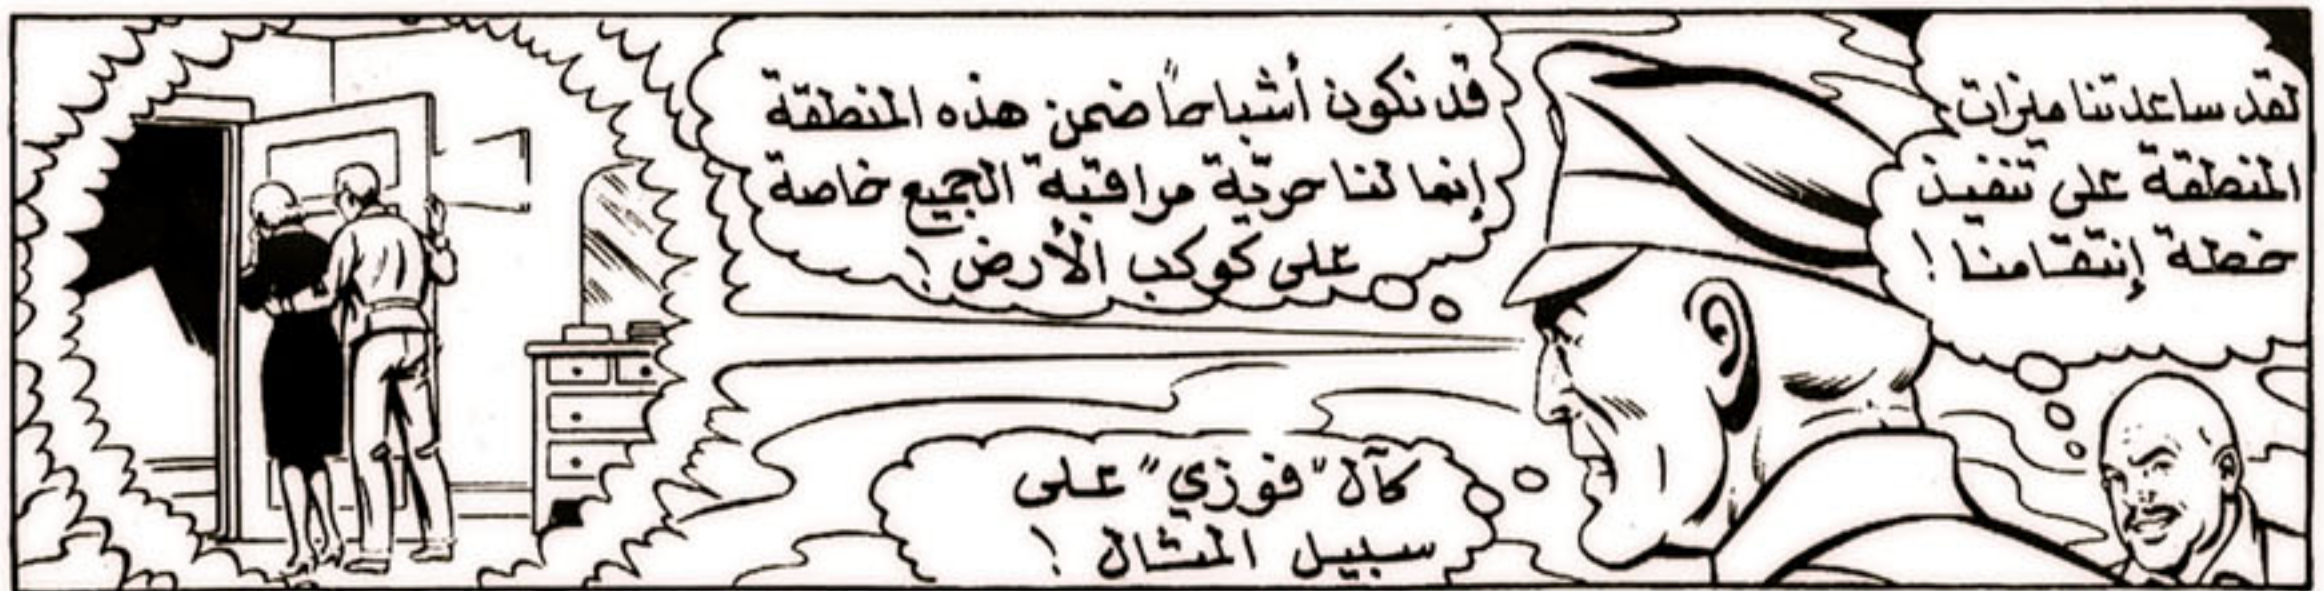 لقد ساعدتنا ميزات
المنطقة على تنفيذ
خطة إنتقامنا !
قد نكون أشباحاً ضمن هذه المنطقة
إنما لنا حريّة مراقبة الجميع خاصة
على كوكب الأرض !
كآل "فوزي" على
سبيل المثال !